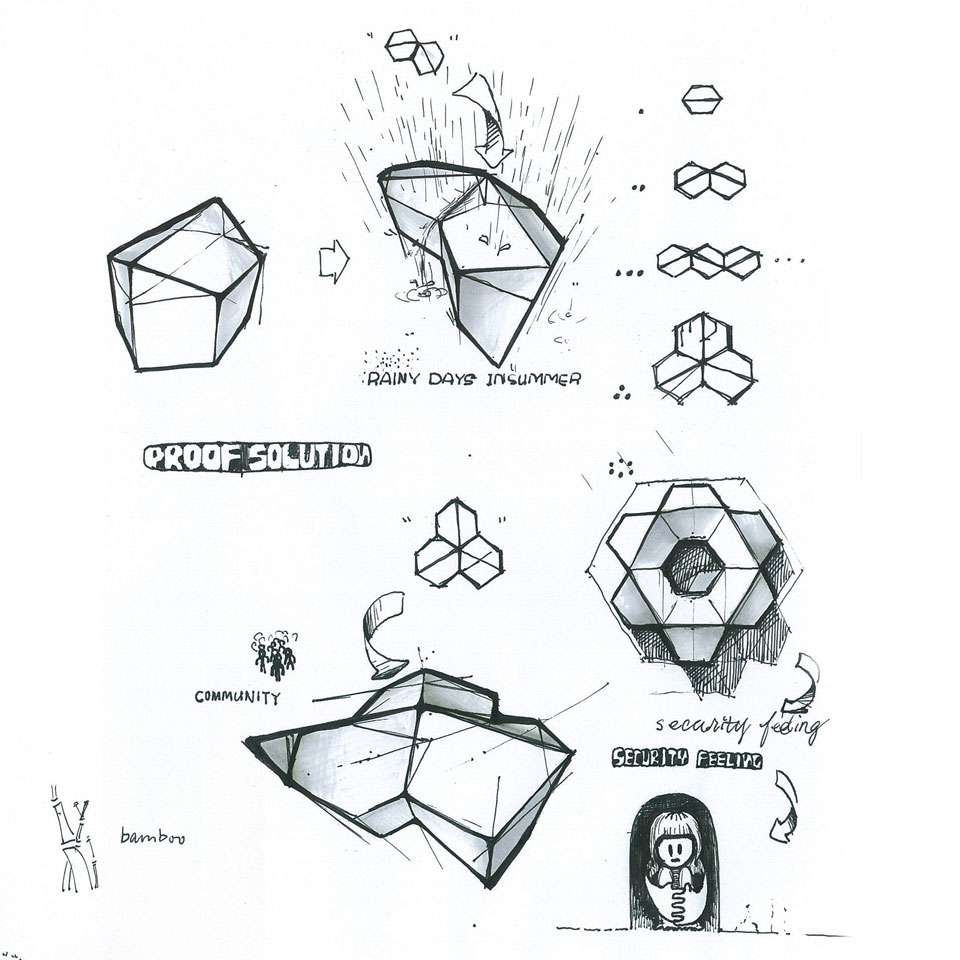 RAINY DAYS INSUMMER
PROOF SOLUTION
COMMUNITY
security feeling
SECURITY FEELING
bamboo